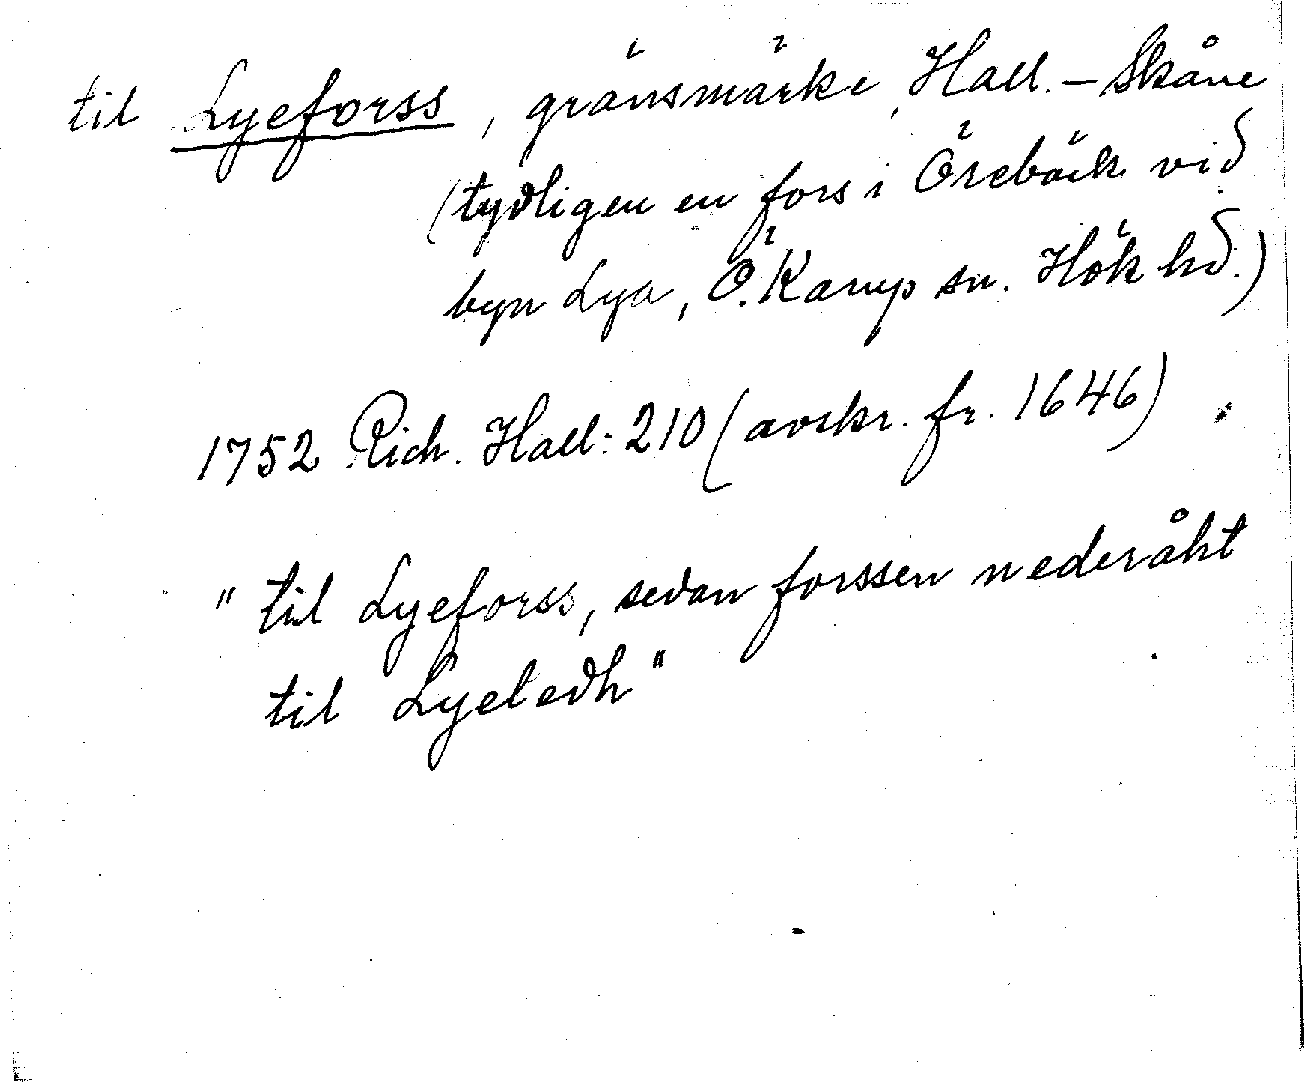 til Lyeforss, gränsmärke, Hall. – Skåne
(tydligen en fors i Örebäck vid
byn Lya, Ö. Karup sn. Hök hd.)
1752 Rich. Hall: 210 (avskr. fr. 1646)
"til Lyeforss, sedan forssen nederåht
til Lyeledh"